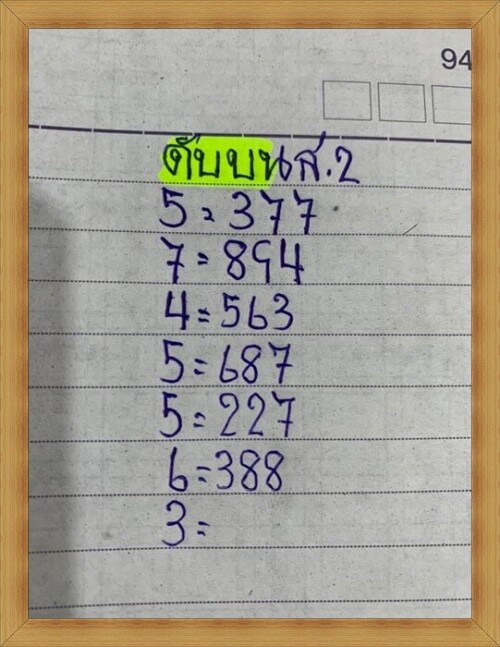 94
ดับบนส.2
5=377
7=894
4=563
5=687
5=227
6=388
3=